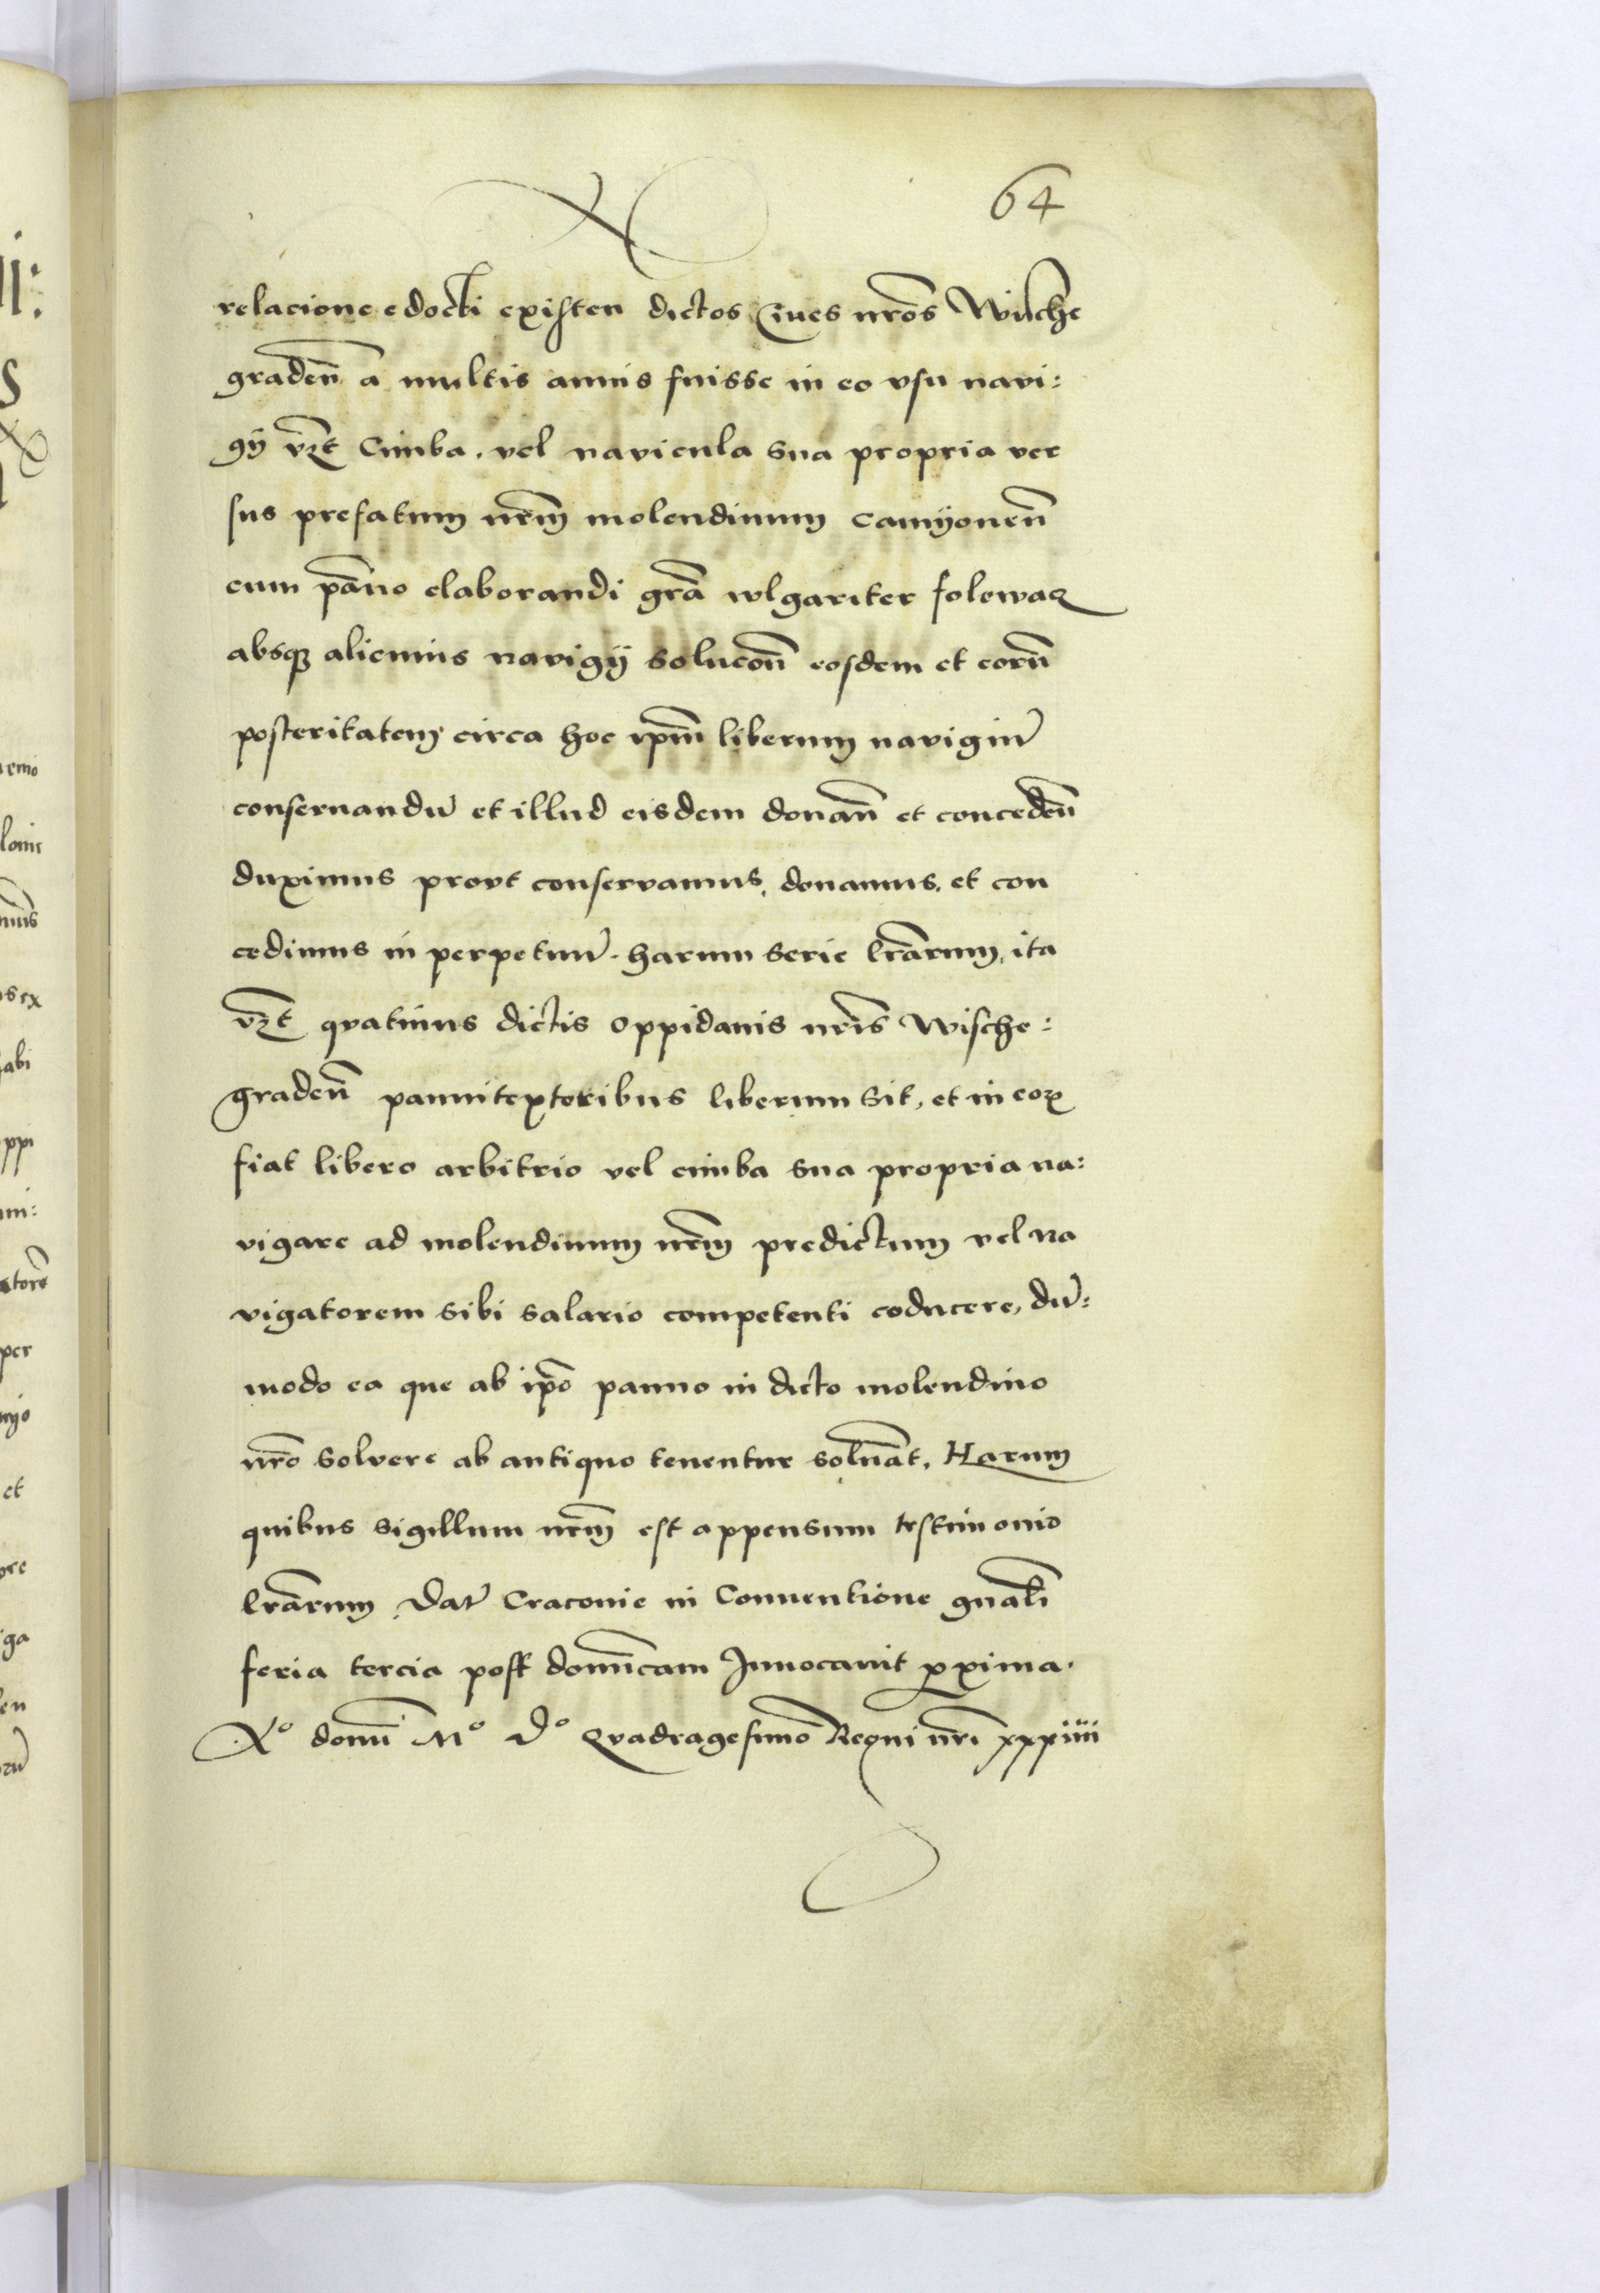 64
relacione edocti existen dictos Ciues nr̃os Wische
graden̄ a multis annis fuisse in eo vsu navi:
gÿ vz̃t Cimba. vel navicula sua propria ver
sus prefatum nr̃m molendinum camÿonen̄
cum pãno elaborandi gr̃a wlgariter folowacz
absqz alicuius navigÿ solucon̄ eosdem et eorū
posteritatem circa hoc ip̃m liberum navigiū
conseruandū et illud eisdem donan̄ et conceden̄
duximus provt conservamus, donamus, et con
cedimus in perpetuū. harum serie lr̃arum, ita
vz̃t qvatinus dictis oppidanis nr̃is Wische:
graden̄ pannitextoribus liberum sit, et in eorꝫ
fiat libero arbitrio vel cimba sua propria na:
vigare ad molendinum nr̃m predictum vel na
vigatorem sibi salario competenti coducere, dū:
modo ea que ab ip̃o panno in dicto molendino
nr̃o solvere ab antiquo tenentur solvãt. Harum
quibus sigillum nr̃m est appensum testimonio
lr̃arum Dat̃ Cracovie in Conventione gn̄ali
feria tercia post domĩcam Invocavit ꝓxima.
A° domĩ M° D° Qvadragesimo Regni nr̃i xxxiiii